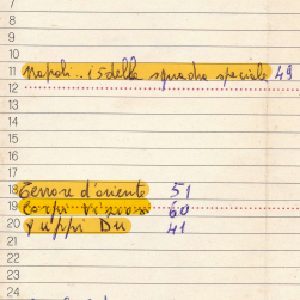 7
8
9
10
11 Napoli.. i 5 della squadra speciale 49
12
13
14
15
16
17
18 Terrore d'oriente 51
19 Corpi 60
20 Yuppi Du 41
21
22
23
24